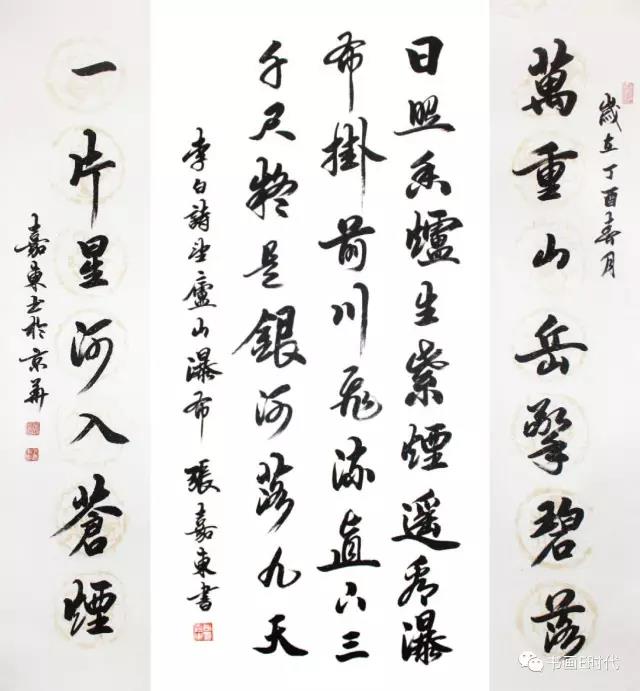 歲在丁酉春月
萬重山岳擎碧落
日照香爐生紫煙遥看瀑
布掛前川飛流直下三
千尺疑是銀河落九天
李白詩望廬山瀑布 張嘉東書
一片星河入蒼煙
嘉東书於京華
书画E时代